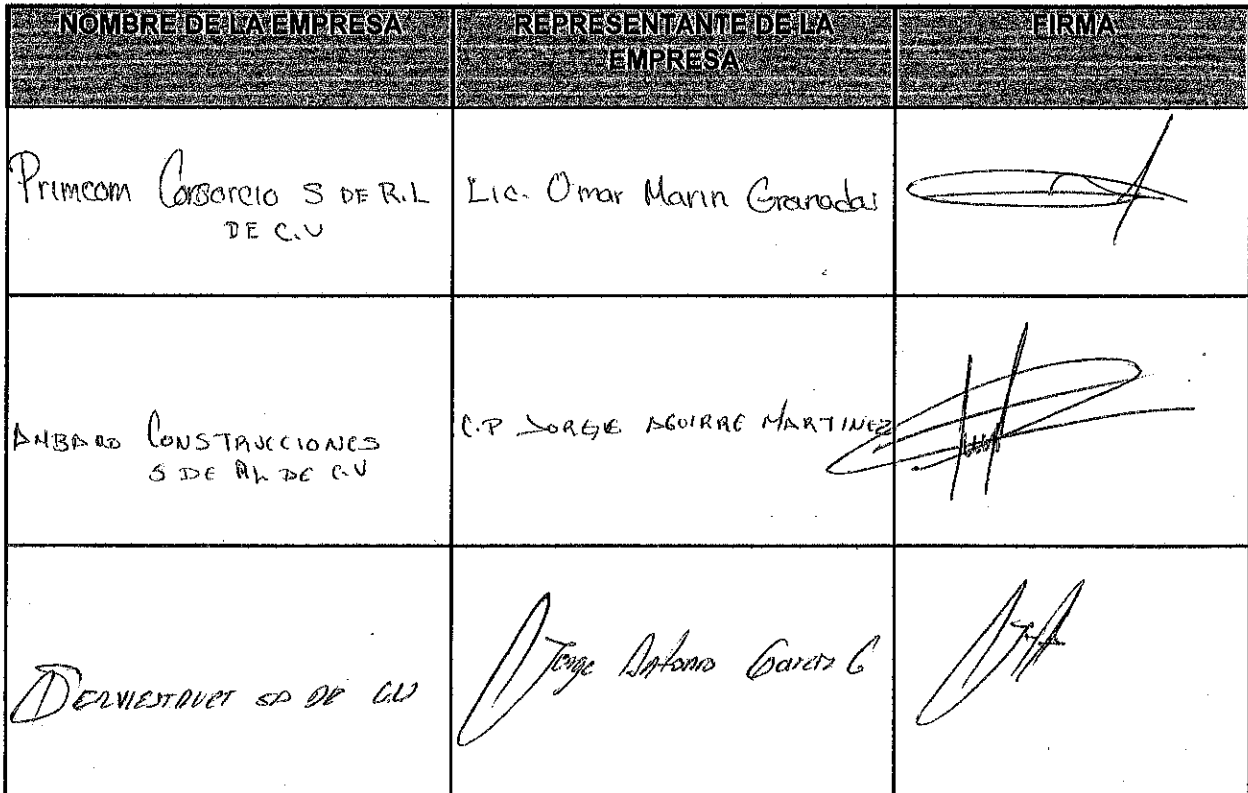 NOMBRE DE LA EMPRESA
REPRESENTANTE DE LA
EMPRESA
FIRMA
Primcom Consorcio S DE R.L
DE C.V
Lic. Omar Marin Granados
CONSTRUCCIONES
S DE RL DE C.V
C.P JORGE AGUIRRE MARTINEZ
SA DE CV
Jorge Antonio Garcia G